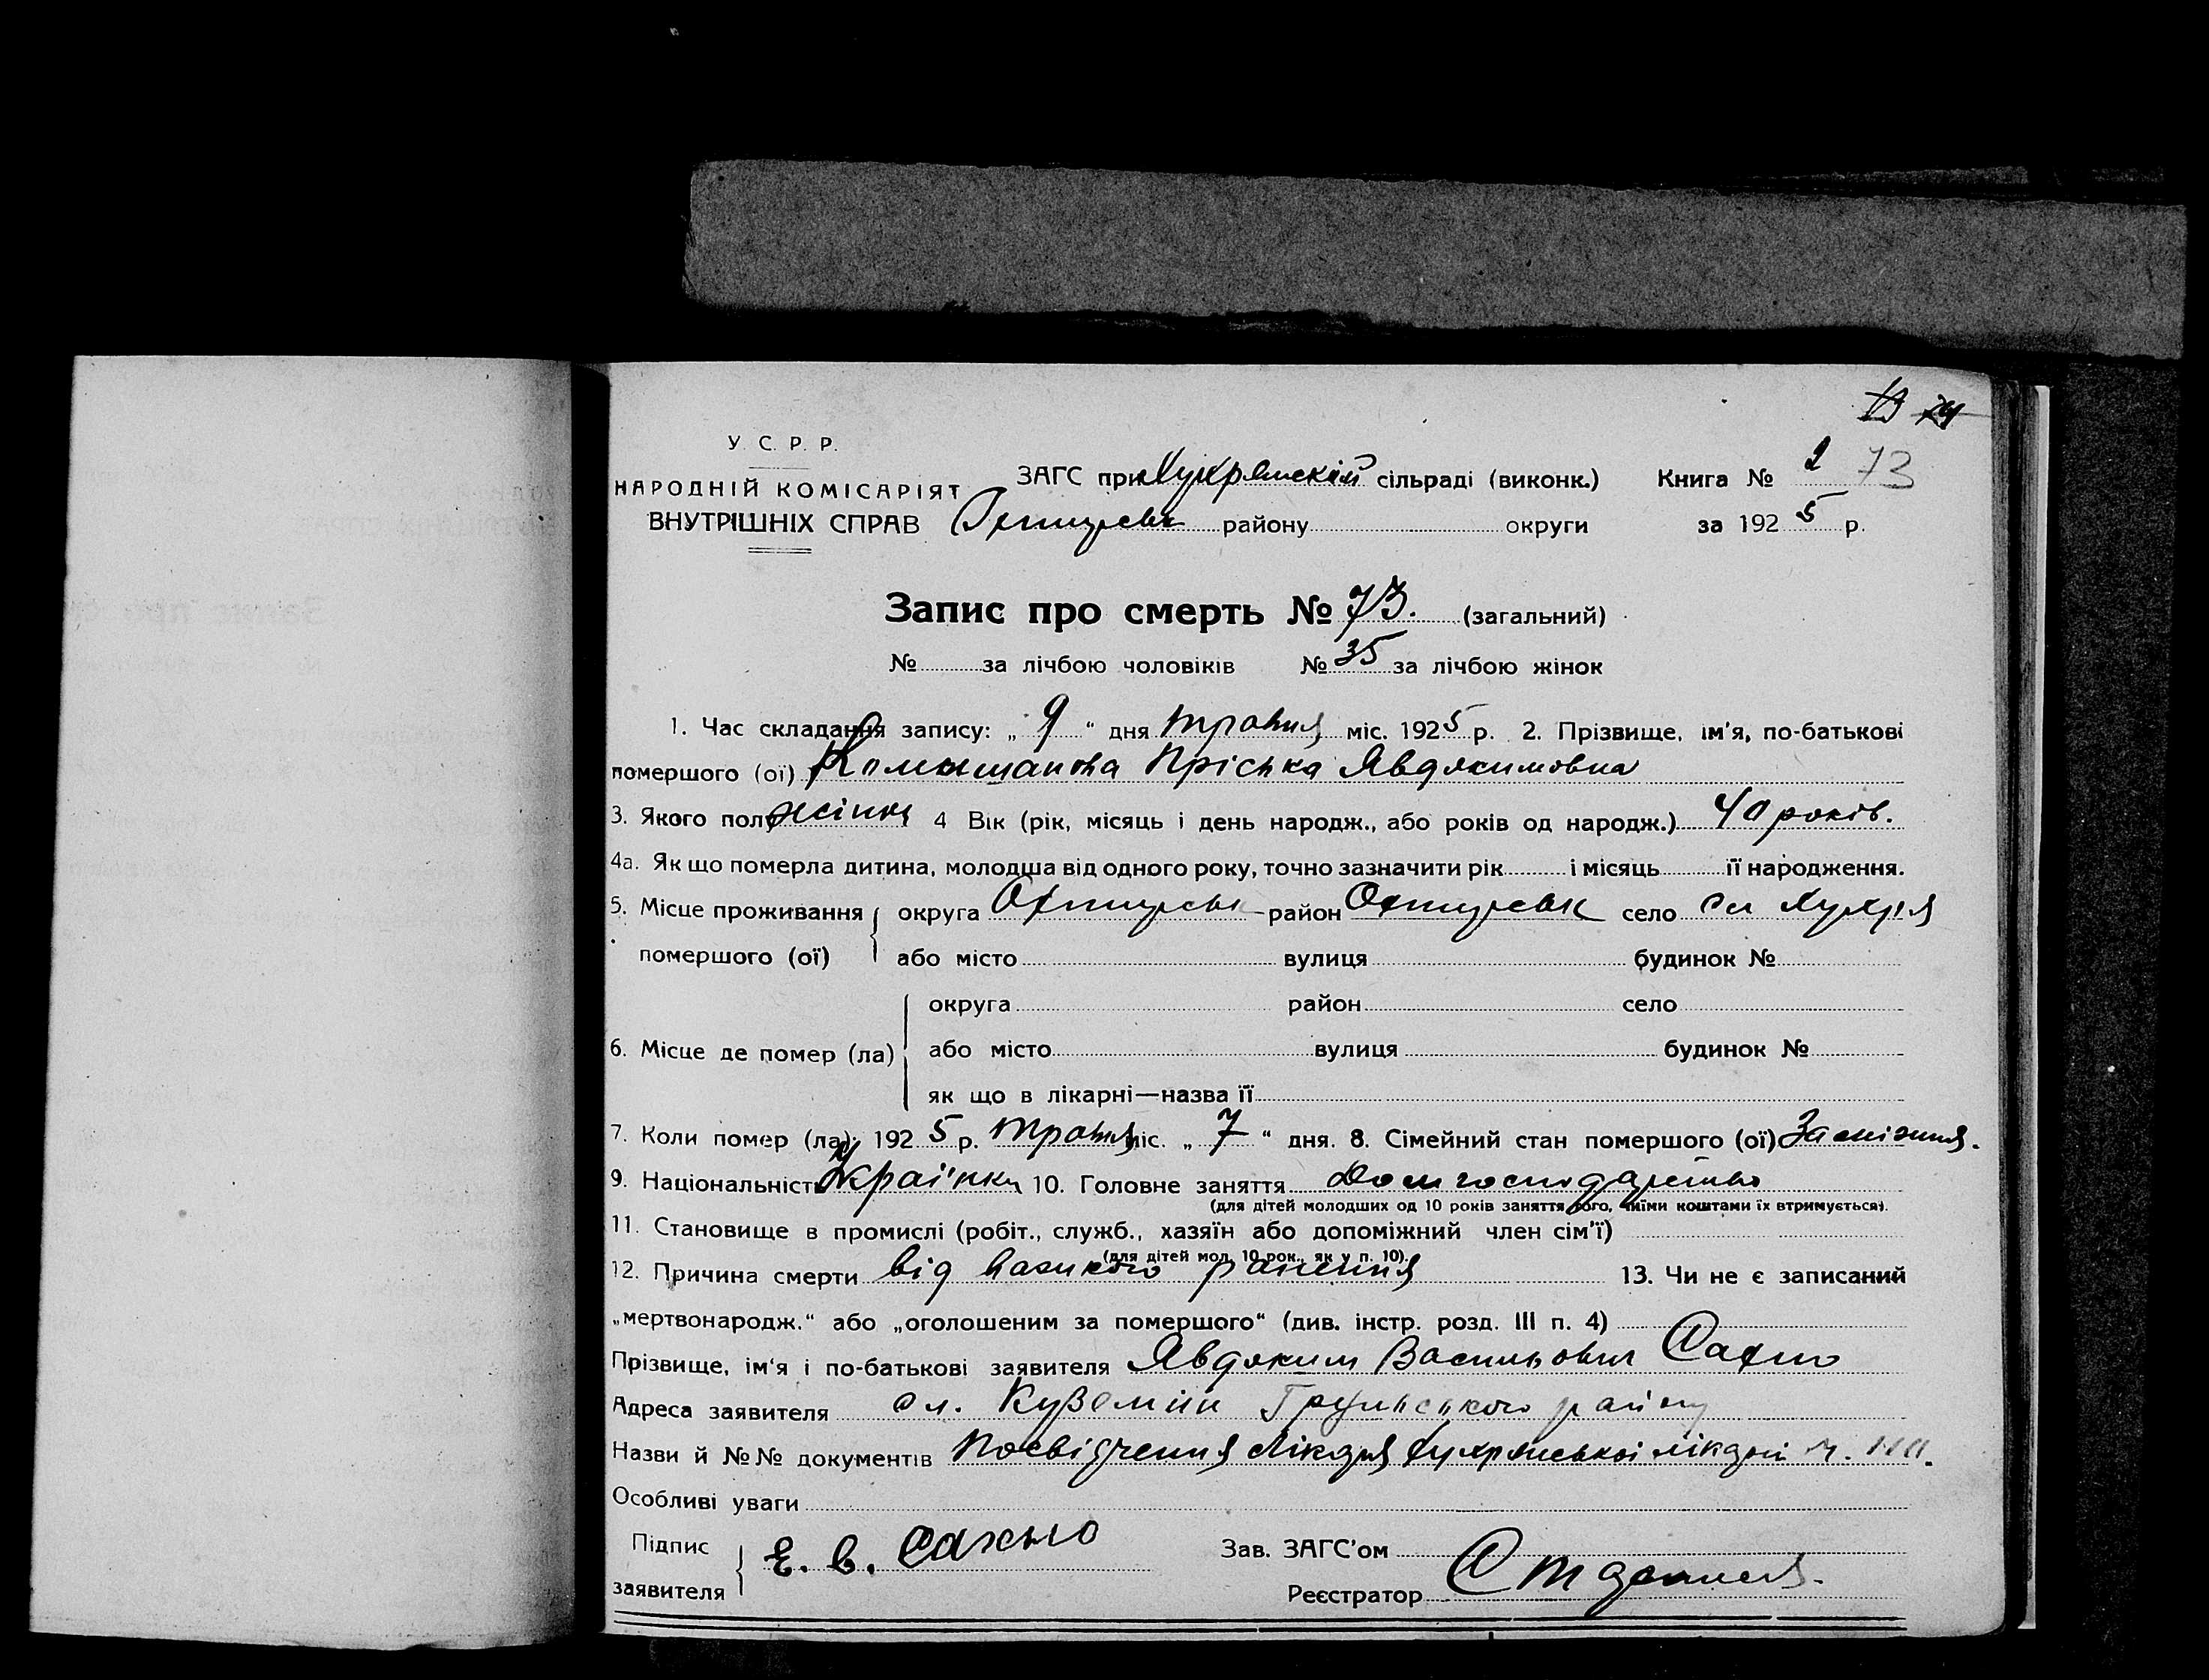 У. С. Р. Р.
НАРОДНІЙ КОМІСАРІЯТ
ВНУТРІШНІХ СПРАВ
ЗАГС при Хухрянскій сільраді (виконк.)
Охтирськ району округи
Книга № 2 73
за 1925 р.
Запис про смерть № 73. (загальний)
№ за лічбою чоловіків № 35 за лічбою жінок
1. Час складання запису: „ 9 “ дня травня міс. 1925 р. 2. Прізвище, ім'я, по-батькові
помершого (ої) Пріська Явдокимовна
3. Якого полу жіноч 4 Вік (рік, місяць і день народж., або років од народж.) 40 років.
4а. Як що померла дитина, молодша від одного року, точно зазначити рік і місяць її народження.
5. Місце проживання помершого (ої) округа Охтирськ район Охтирськ село сл Хухря
або місто вулиця будинок №
6. Місце де помер (ла) округа район село
або місто вулиця будинок №
як що в лікарні—назва її
7. Коли помер (ла): 1925 р. травня міс. „ 7 “ дня. 8. Сімейний стан помершого (ої) Заміжня.
9. Національність Українка 10. Головне заняття Домгосподарство
(для дітей молодших од 10 років заняття того, чиїми коштами їх втримується).
11. Становище в промислі (робіт., служб., хазяїн або допоміжний член сім'ї)
(для дітей мол. 10 рок., як у п. 10).
12. Причина смерти від важкого ранення 13. Чи не є записаний
„мертвонародж.“ або „оголошеним за помершого“ (див. інстр. розд. III п. 4)
Прізвище, ім'я і по-батькові заявителя Явдоким Васильович Сахно
Адреса заявителя сл. Куземин Грунського району
Назви й №№ документів Посвідчення лікаря Хухрянської лікарні
Особливі уваги
Підпис заявителя Е. В. Сахно
Зав. ЗАГС'ом
Реєстратор